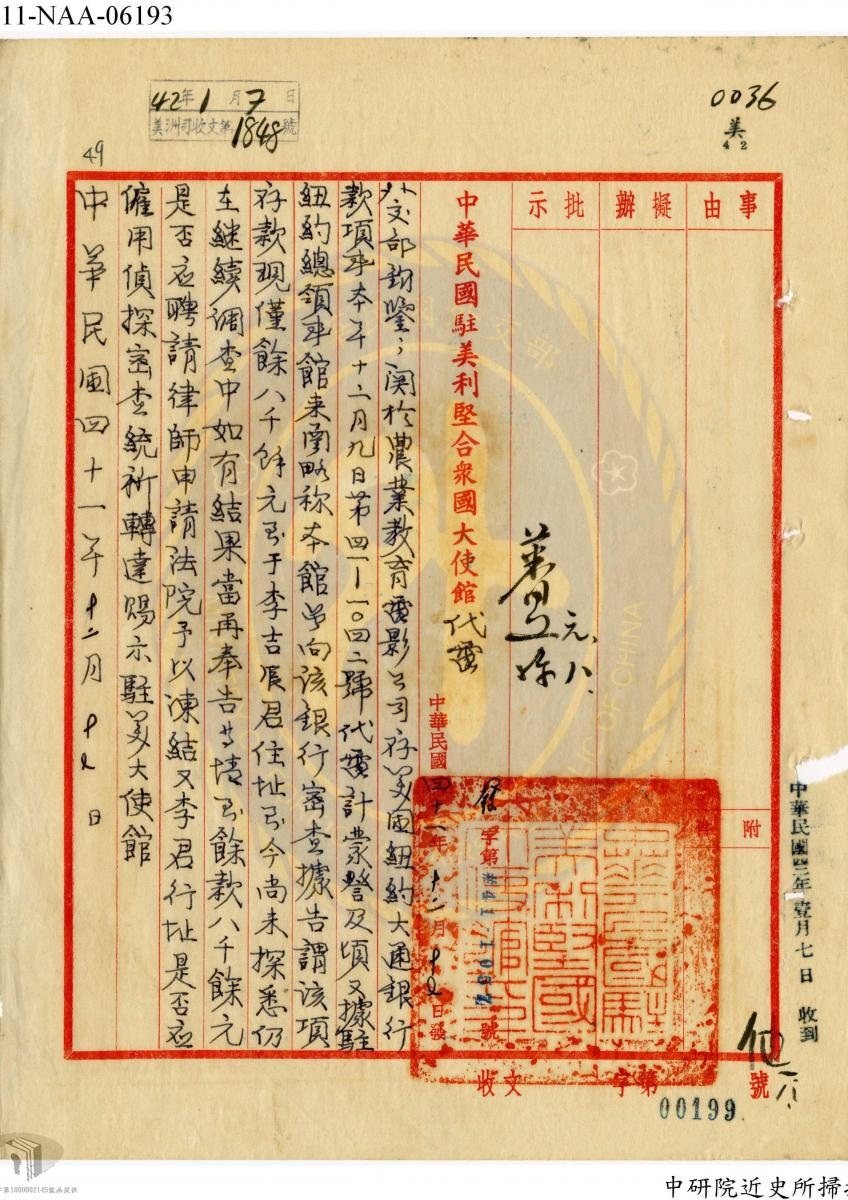 11-NAA-06193
42年1月7日
美洲司收文第1848號
0036
美
42
49
事由
擬辦
批示
附件
中華民國駐美利堅合衆國大使館代電
元、八、
中華民國四十一年十二月十九日發
發字第#41/1052號
外交部鈞鑒：関於農業教育電影公司存美国紐約大通銀行
款項事本年十二月九日第四一－一〇四二號代電計蒙詧及頃又據駐
紐約總領事館来函略称本館曾向該銀行密查據告謂該項
存款現僅餘八千餘元至于李吉辰君住址至今尚未探悉仍
在継續调查中如有結果當再奉告等情至餘款八千餘元
是否应聘請律師申請法院予以凍結又李君行址是否应
僱用偵探密查統祈轉達賜示駐美大使館
中華民国四十一年十二月十九日
中華民國四二年壹月七日收到
收文 字第 號
00199
中研院近史所掃
字第1000002145號函提供